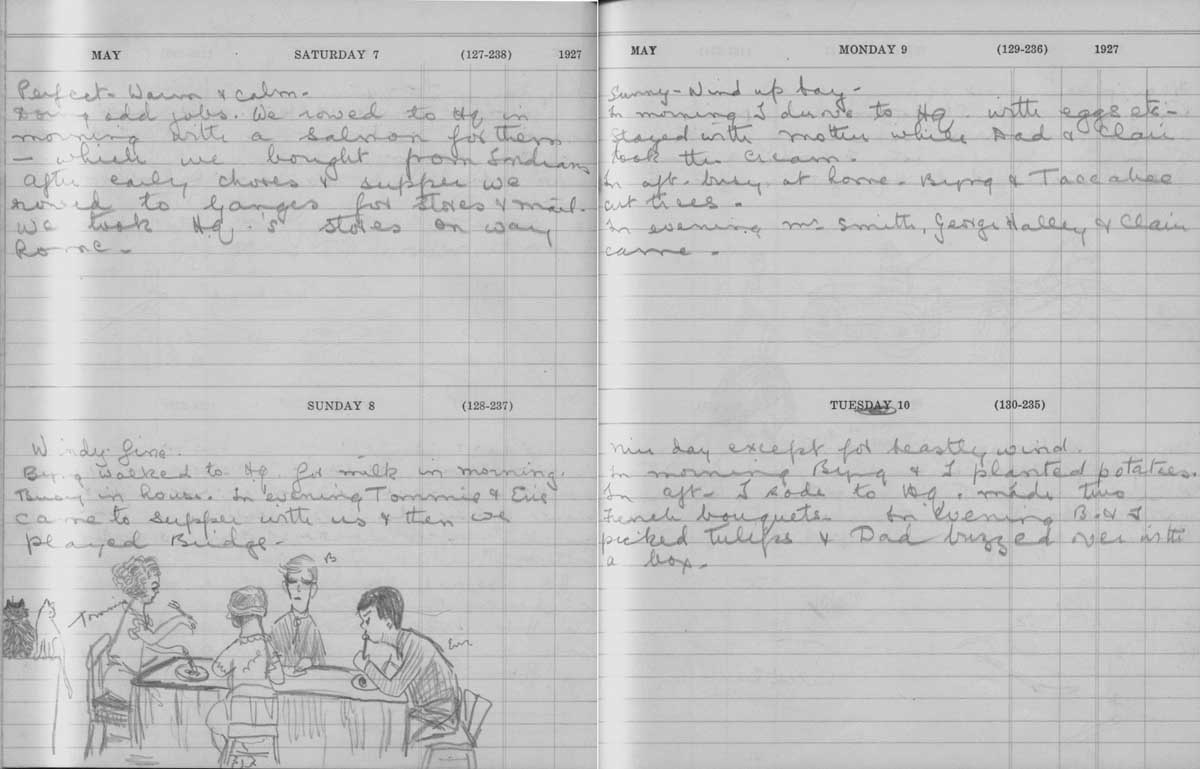 MAY SATURDAY 7 (127-238) 1927
Perfect - Warm & calm -
Doing odd jobs. We rowed to Hq in
morning with a salmon for them
— which we bought from Indians
After early chores & supper we
rowed to Ganges for stores & mail.
We took Hq.'s stores on way
home -
SUNDAY 8 (128-237)
Windy fine.
Byng walked to Hq for milk in morning.
Busy in house. In evening Tommie & Eric
came to supper with us & then we
played Bridge -
B
Tommie
Eric
MAY MONDAY 9 (129-236) 1927
Sunny - Wind up bay -
In morning I drove to Hq. with eggs etc -
Stayed with mother while Dad & Clair
took the cream.
In aft. busy at home - Byng &
cut trees.
In evening Mr Smith, George Halley & Clair
came.
TUESDAY 10 (130-235)
Nice day except for beastly wind.
In morning Byng & I planted potatoes.
In aft - I rode to Hq. made two
French bouquets. In evening B. & I
picked tulips & Dad buzzed over with
a box.